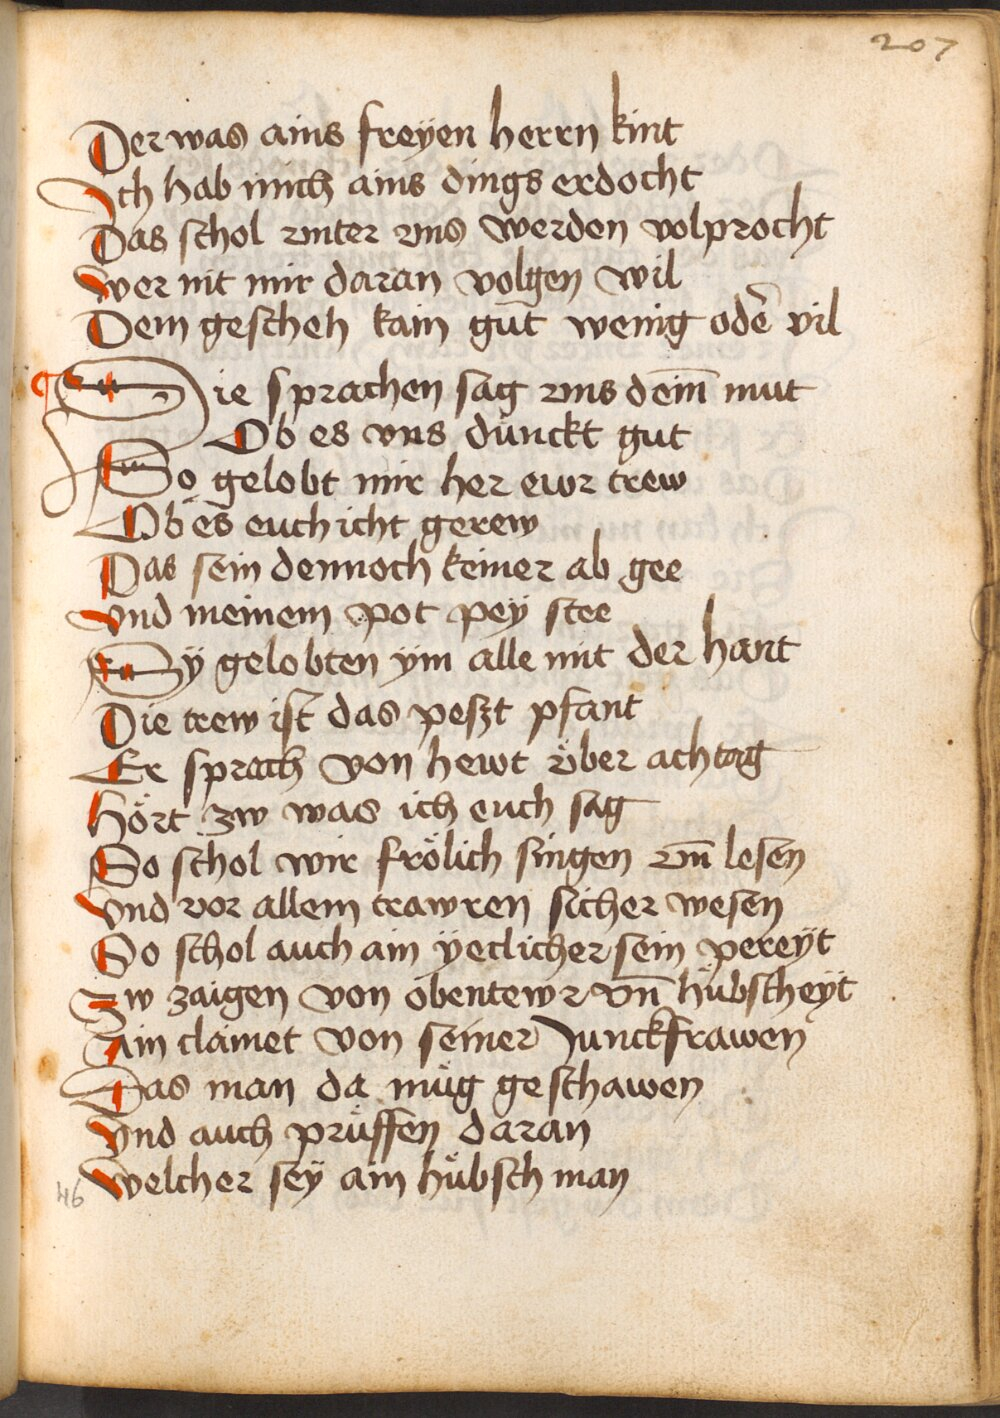 207
Der was ains freÿen herrn kint
Ich hab mich ains dings erdocht
Das schol vnter vns werden volprocht
wer nit mir daran volgen wil
Dem gescheh kain gut wenig oder̄ vil
Sie sprachen sag vns dein̄ mut
Ob es vns dunckt gut
So gelobt mir her ewr trew
Ob es euch icht gerew
Das sein dennoch keiner ab gee
vnd meinem pot peÿ stee
Sÿ gelobten ÿm alle mit der hant
Die trew ist das peszt pfant
Er sprach von hewt vͤber achtag
Hört zw was ich euch sag
So schol wir frölich singen vn̄ lesen
Vnd vor allem trawren sicher wesen
So schol auch ain ÿetlicher sein pereÿt
Zw zaigen von obentewr vn̄ hübscheÿt
Ain clainet von seiner Junckfrawen
Das man da müg geschawen
Vnd auch prüffen daran
Welcher seÿ ain hübsch man
46